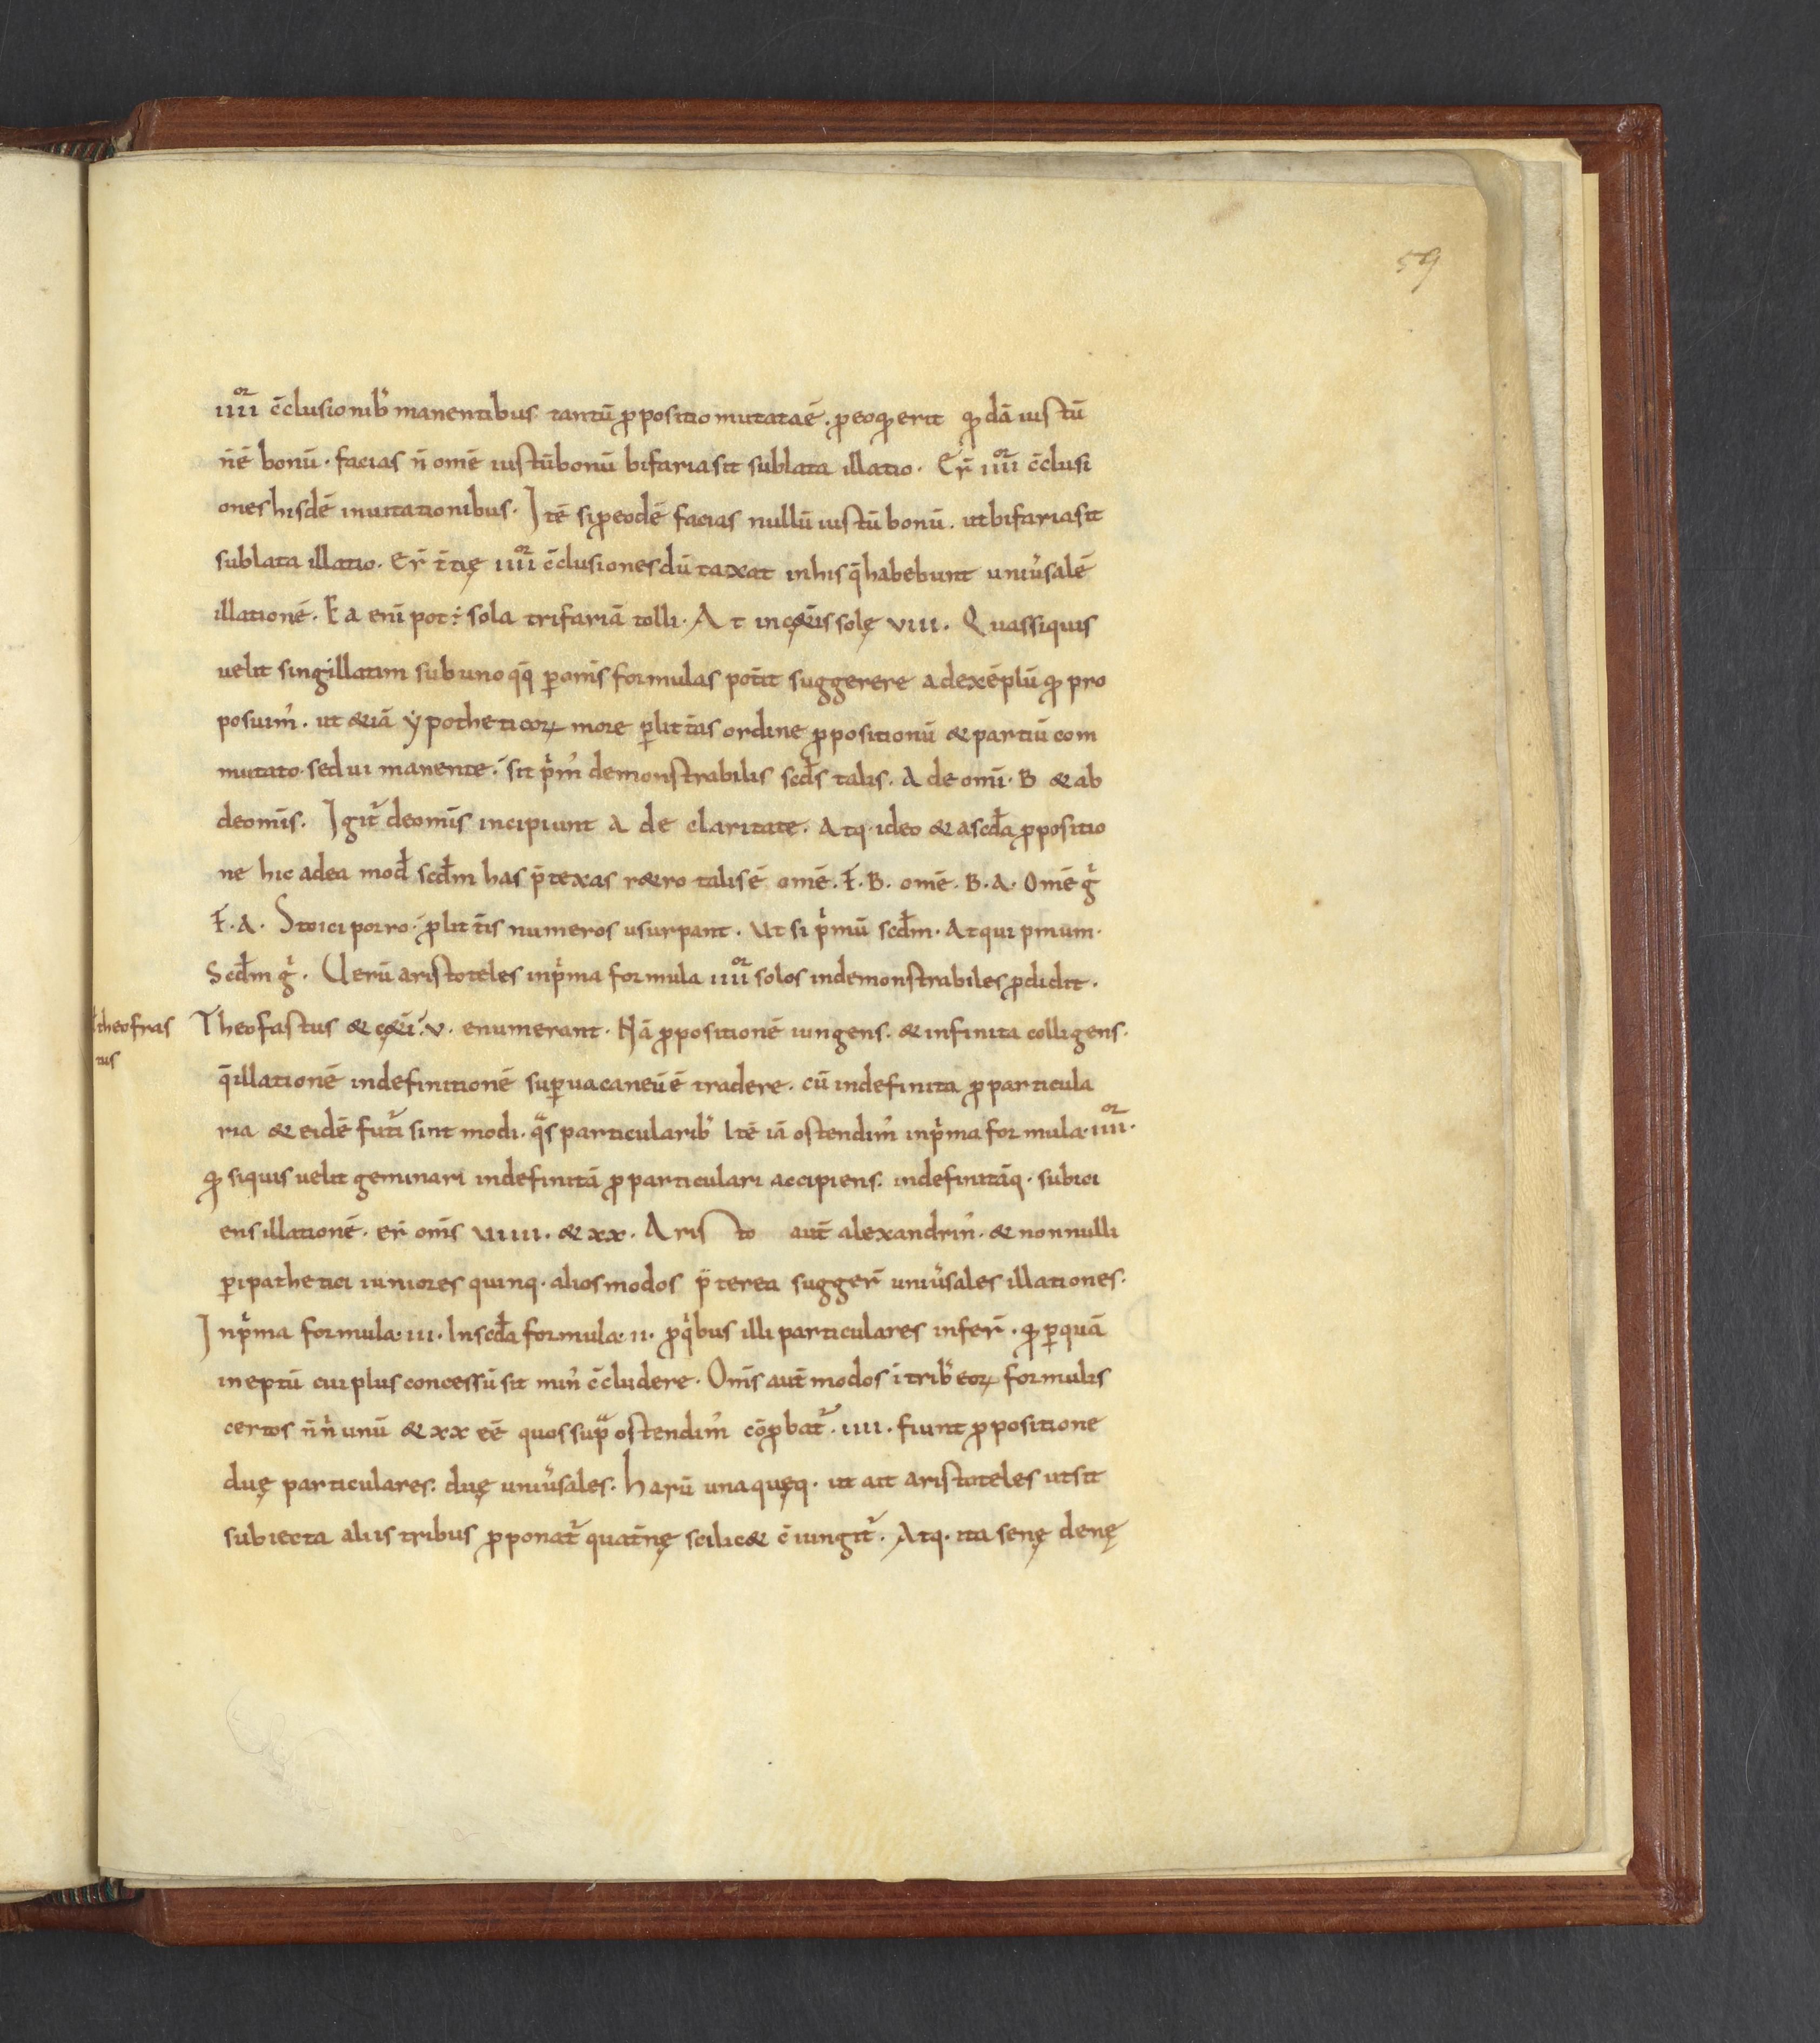 59
iiii^or c̄clusionib' manentibus tantū ꝓpositio mutata ē. ꝓ eo qđ erit qđdā iustū
n̄ ē bonū. facias n̄ om̄e iustū bonū bifaria sit sublata illatio. Er̄ iiii^or c̄clusi
ones hisdē inuitationibus. Itē si ꝓ eodē facias nullū iustū bonū. ut bifaria sit
sublata illatio. Er̄ c̄tıę iiii^or c̄clusiones dū taxat in his q̄ habebunt uniu̓salē
illationē. Ea enī pot: sola trifariā tolli. At in cę&is solę viii. Quas siquis
uelit singillatim sub uno qq̄ ꝑ om̄s formulas pot̄it suggerere ad exēplū qđ pro
posuim'. ut &iā ypotheticoꝝ more ꝑ litt̄as ordine ꝓpositionū & partiū com
mutato. sed ui manente. sit pͥm' demonstrabilis scđs talis. A de omī. B & ab
de om̄is. Igit̄ de om̄is incipiunt a de claritate. Atq. ideo & a scđa ꝓpositio
ne hic ad ea mođ scđm has p̄texas r&ro talis ē om̄e. F. B. om̄e. B. A. Om̄e gͥ
F. A. Stoici porro. ꝓ litt̄is numeros usurpant. Ut si pͥmū scđm. Atqui pmum.
Scđm gͥ. Uerū aristoteles in pͥma formula iiii^or solos indemonstrabiles ꝓdidit.
theofras
tus
Theofastus & cę&i. v. enumerant. Nā ꝓpositionē iungens. & infinita colligens.
q̄ illationē indefinitionē suꝑuacaneū ē tradere. cū indefinita ꝓ particula
ria & eidē fut̄i sint modi. qͣs particularib' Itē iā ostendim' in pͥma formula. iiii^or.
qđ siquis uelit geminari indefinitā ꝓ particulari accipiens. indefinitāq. subici
ens illationē. er̄ om̄s viiii. & xx. Aristo aut̄ alexandrin'. & nonnulli
ꝑipathetici iuniores quinq. alios modos pͣterea sugger̄ uniu̓sales illationes.
In pͥma formula. iii. In scđa formula. ii. ꝓ qͥbus illi particulares infer̄. qđ ꝑquā
ineptū cui plus concessū sit min' c̄cludere. Om̄s aut̄ modos ī trib' eoꝝ formulis
certos n̄ nͥ unū & xx ēē quos supͣ ostendim' cōꝓbat̄. iiii. fiunt ꝓpositione
duę particulares. duę uniu̓sales. harū unaquęq. ut ait aristoteles ut sit
subiecta aliis tribus ꝓponat̄ quat̄nę scilic& c̄iungit̄. Atq. ita senę denę